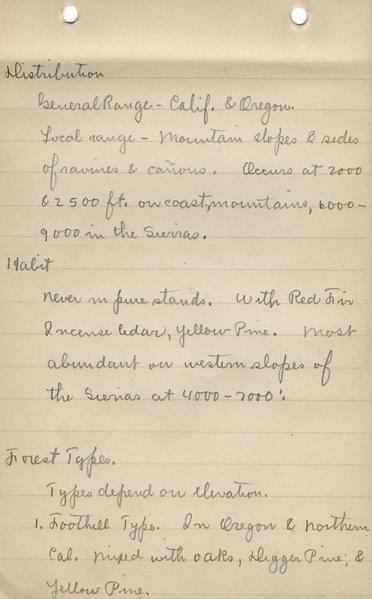 Distribution
General Range - Calif. & Oregon.
Local range - Mountain slopes & sides
of ravines & cañons. Occurs at 2000
& 2500 ft. on coast, mountains, 6000-
9000 in the Sierras.
Habit
never in pure stands. With Red Fir
Incense Cedar, Yellow Pine. Most
abundant on western slopes of
the Sierras at 4000-7000'.
Forest Types.
Types depend on elevation.
1. Foothill Type. In Oregon & northern
Cal. mixed with oaks, Digger Pine, &
Yellow Pine.